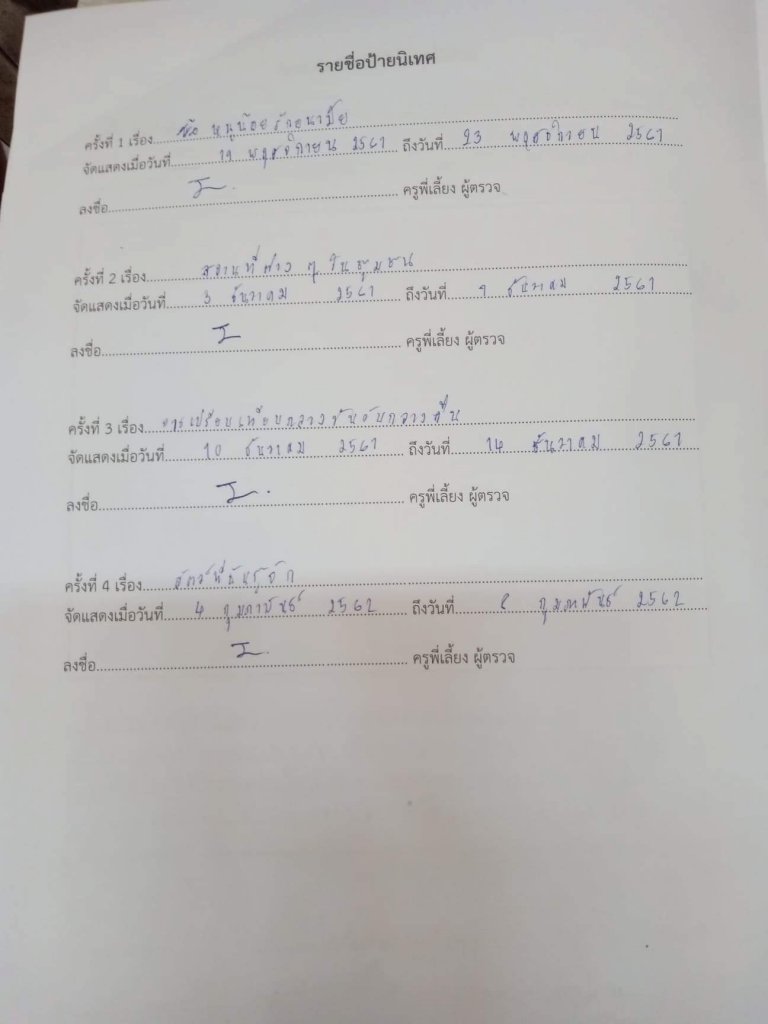 รายชื่อป้ายนิเทศ
ครั้งที่ 1 เรื่อง หนูน้อยรักอนามัย
จัดแสดงเมื่อวันที่ 19 พฤศจิกายน 2561 ถึงวันที่ 23 พฤศจิกายน 2561
ลงชื่อ ครูพี่เลี้ยง ผู้ตรวจ
ครั้งที่ 2 เรื่อง สถานที่ต่าง ๆ ในชุมชน
จัดแสดงเมื่อวันที่ 3 ธันวาคม 2561 ถึงวันที่ ธันวาคม 2561
ลงชื่อ ครูพี่เลี้ยง ผู้ตรวจ
ครั้งที่ 3 เรื่อง การเปรียบเทียบกลางวันกับกลางคืน
จัดแสดงเมื่อวันที่ 10 ธันวาคม 2561 ถึงวันที่ 14 ธันวาคม 2561
ลงชื่อ ครูพี่เลี้ยง ผู้ตรวจ
ครั้งที่ 4 เรื่อง สัตว์ที่ฉันรู้จัก
จัดแสดงเมื่อวันที่ 4 กุมภาพันธ์ 2562 ถึงวันที่ 8 กุมภาพันธ์ 2562
ลงชื่อ ครูพี่เลี้ยง ผู้ตรวจ